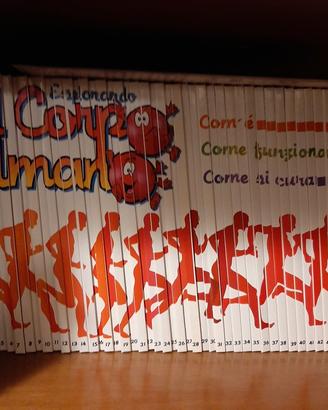 Esplorando
l Corpo
Umano
Com'è
Come funziona
Come si cura
5 6 7 8 9 10 11 12 13 14 15 16 17 18 19 20 21 22 23 24 25 26 27 28 29 30 31 32 33 34 35 36 37 38 39 40 41 42